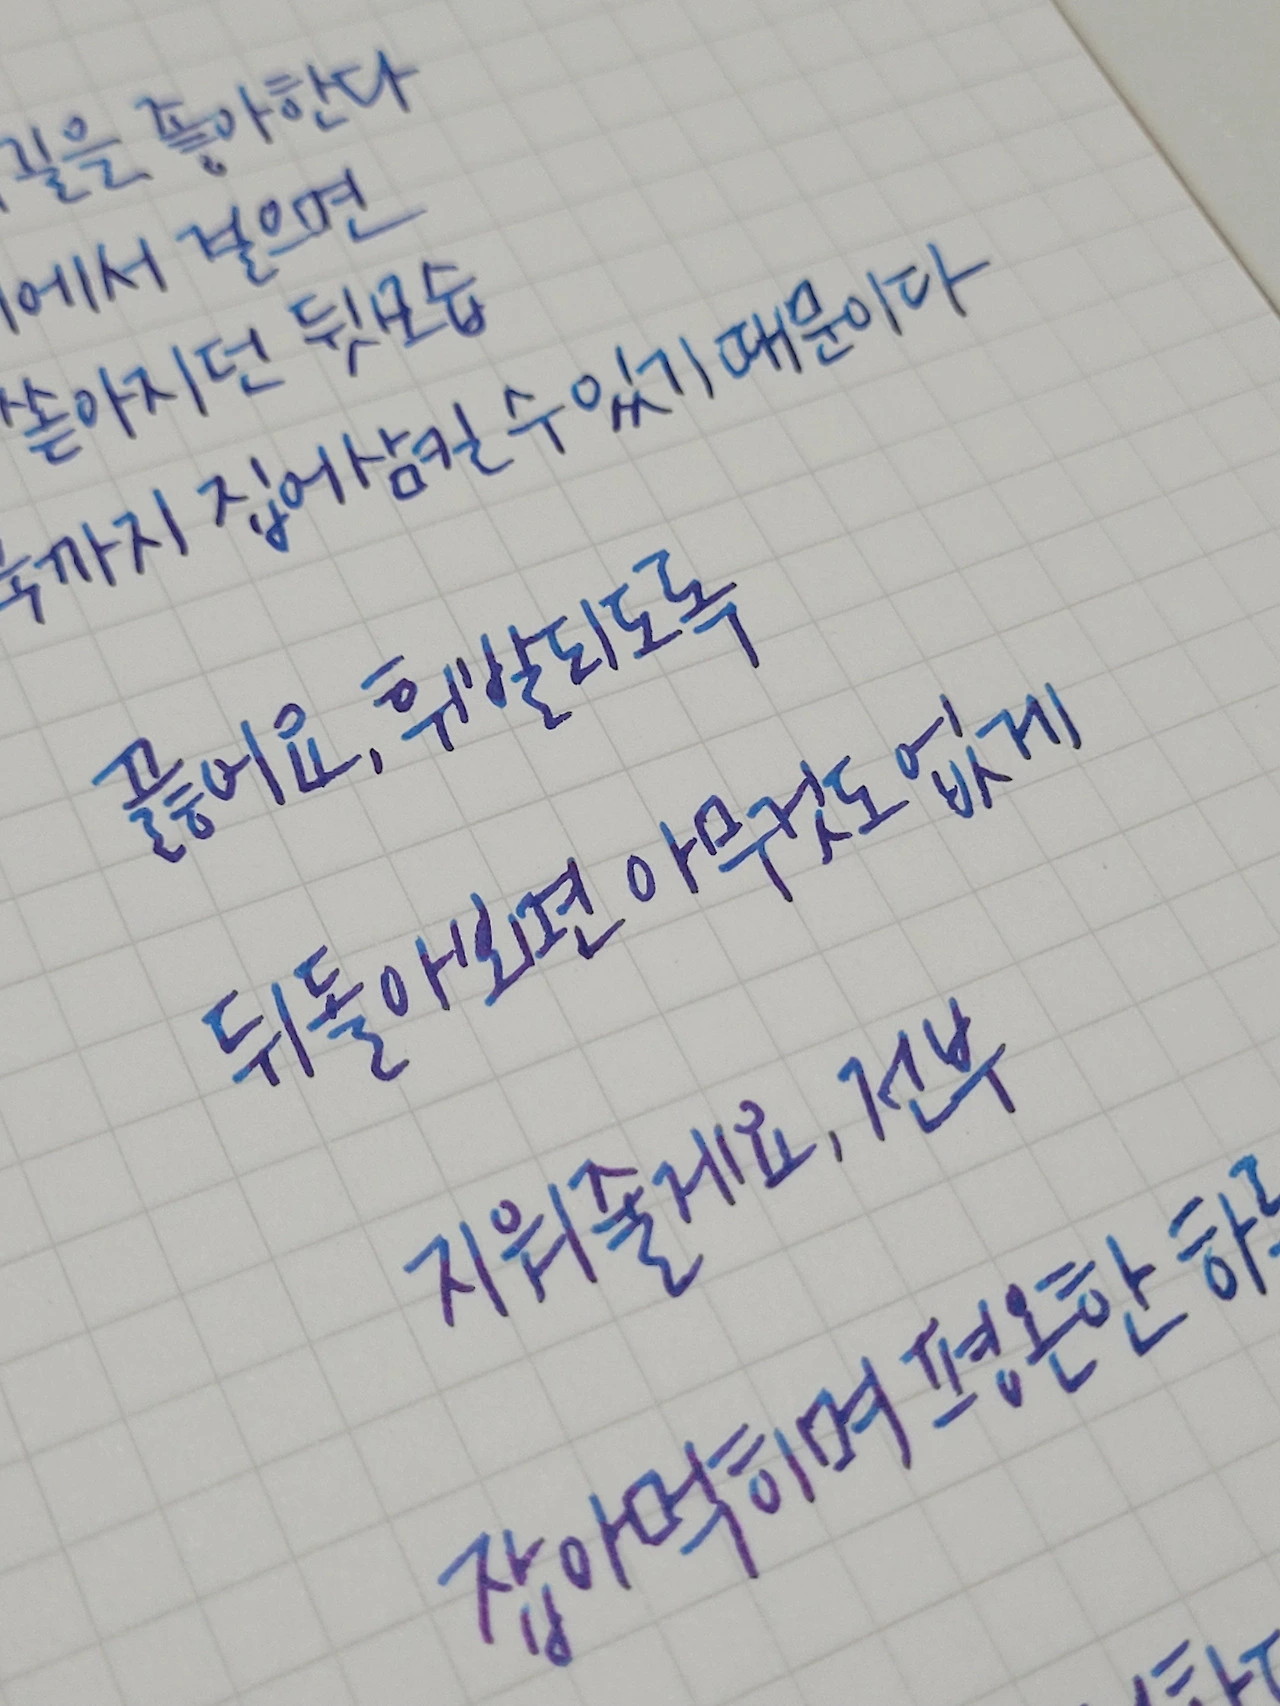 길을 좋아한다
에서 걸으면
쏟아지던 뒷모습
까지 집어삼킬 수 있기 때문이다
끓어요, 휘발되도록
뒤돌아보면 아무것도 없게
지워줄게요, 전부
잡아먹히며 평온한